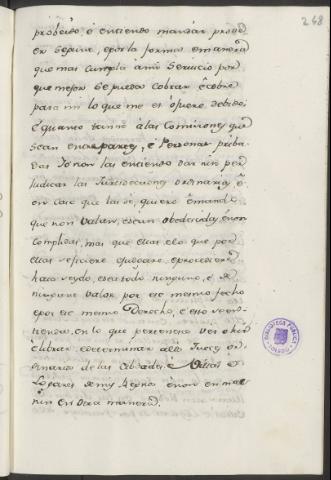 268
probeido, é entiendo mandar, proved
er Seguir, e por la forma, e manera
que mas cumpla ámi Servicio por
que mejor se pueda cobrar é cobre
para mi lo que me es ó fuere debido;
E quanto tanne álas Comisiones que
sean entre partes, é Personas priba-
das Yo non las entiendo dar nin per
judicar las Jurisdicciones Ordinarias é
en caso que las dé, quiero é mando
que non valan, é sean obedecidas, é non
complidas, mas que ellas, e lo que por
ellas se ficiere ó juzgare, e procediere
haia seydo, é sea todo ninguno, é de
ningunt valor por ese mesmo fecho
é por ese mesmo Derecho, é eso se en-
tienda en lo que pertenece ver ó hir
é librar, é determinar alos Jueces or-
dinarios de las Cibdades, Villas é
Logares de mis Regnos é non en mas
nin en otra manera.
BIBLIOTECA PUBLICA
TOLEDO